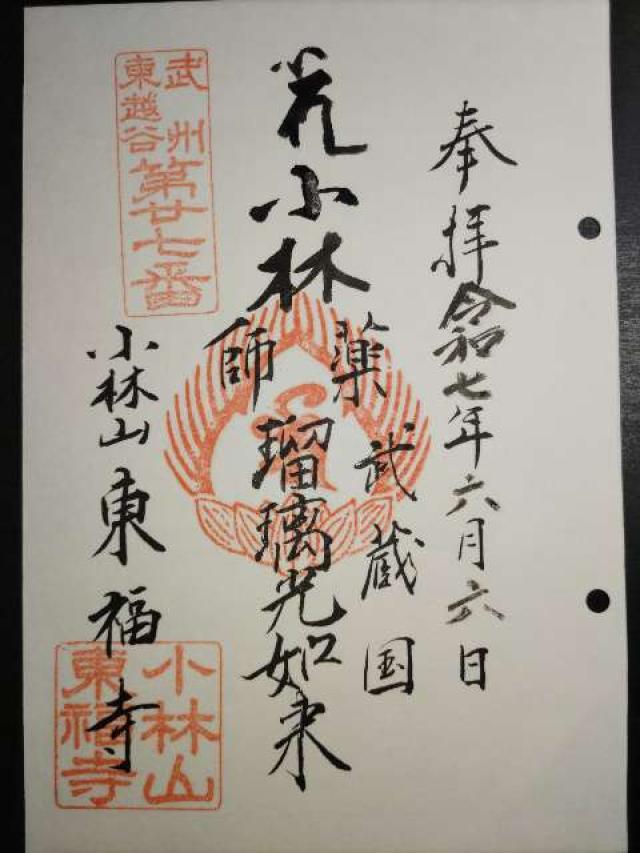 奉拝 令和七年六月六日
武蔵国
小林
薬師
瑠璃光如来
武州
東越谷
第廿七番
小林山 東福寺
小林山
東福寺